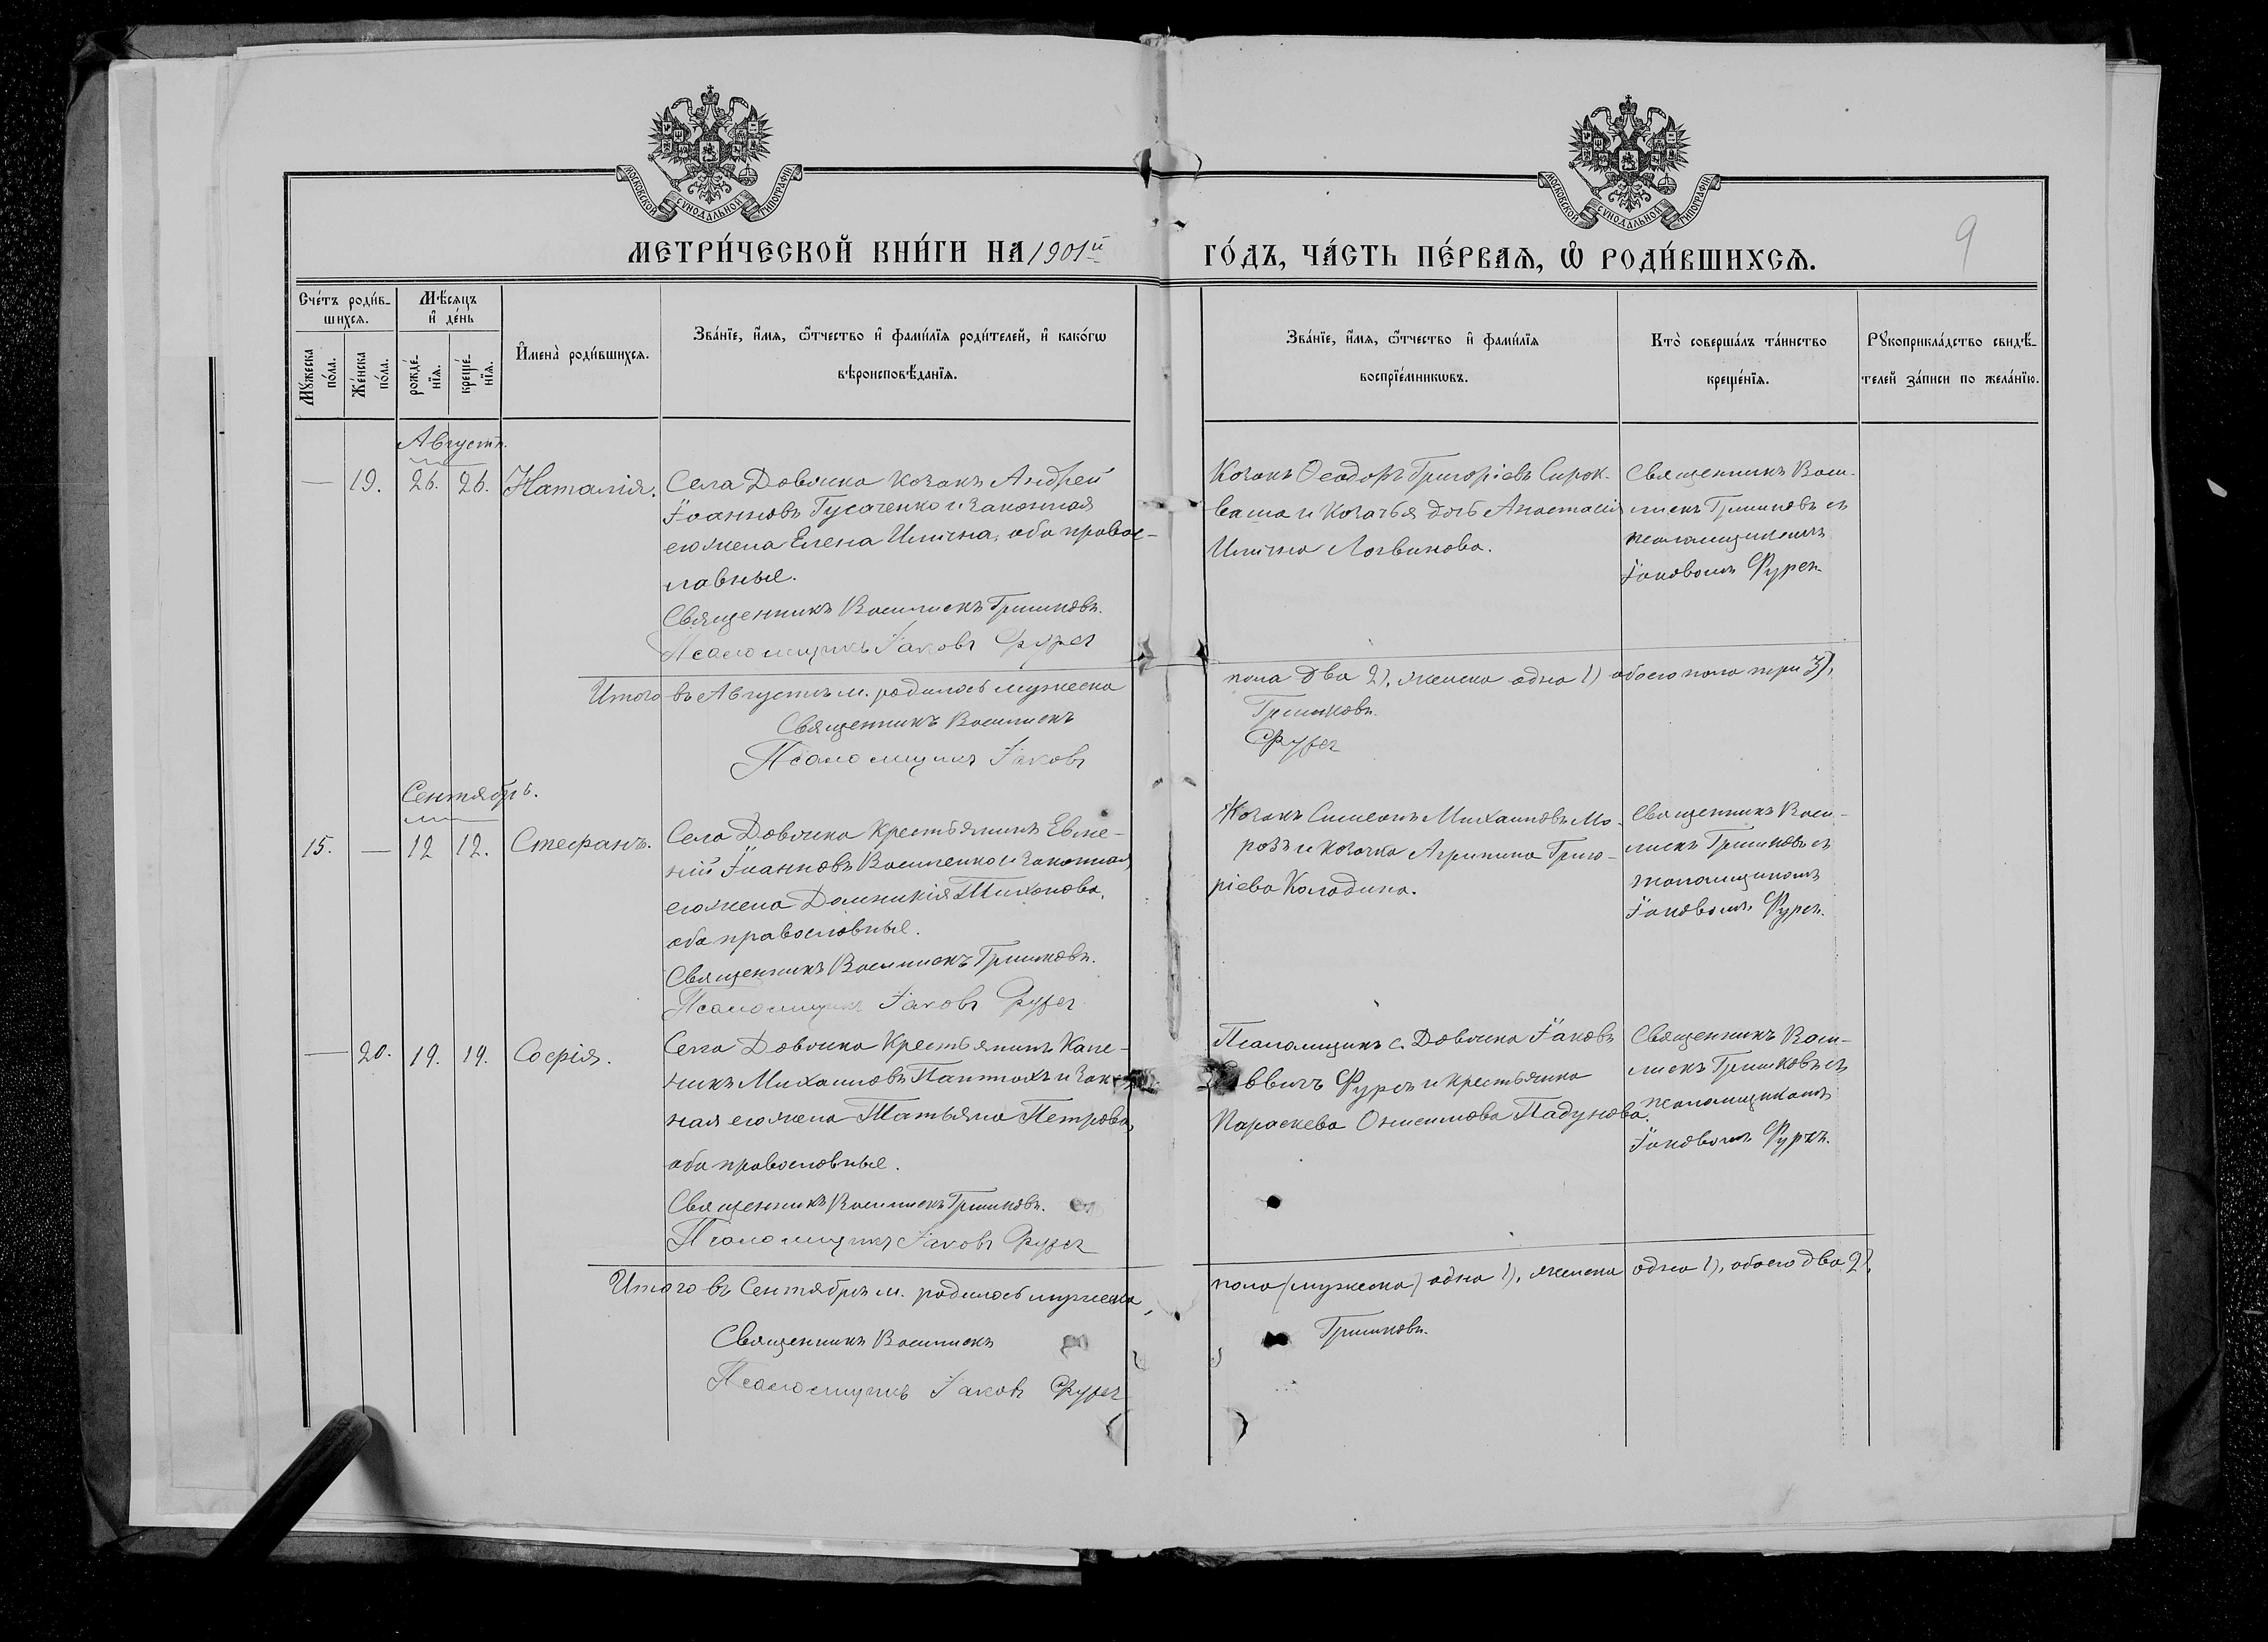 МОСКОВСКОЙ СУНОДАЛЬНОЙ ТИПОГРАФІИ
МОСКОВСКОЙ СУНОДАЛЬНОЙ ТИПОГРАФІИ
9
МЕТРИ́ЧЕСКОЙ КНИ́ГИ НА 1901й ГО́ДЪ, ЧА́СТЬ ПЕ́РВАѦ, Ѡ РОДИ́ВШИХСѦ.
Сче́тъ роди́в-
шихсѧ.
Мꙋ́жеска по́ла.
Же́нска по́ла.
Мѣ́сѧцъ
и҆ де́нь
рожде́-
нїѧ.
креще́-
нїѧ.
И҆мена̀ роди́вшихсѧ.
Зва́нїе, и҆́мѧ, ѻ҆́тчество и҆ фами́лїѧ роди́телей, и҆ како́гѡ
вѣроисповѣ́данїѧ.
Зва́нїе, и҆́мѧ, ѻ҆́тчество и҆ фами́лїѧ
воспрїе́мникѡвъ.
Кто̀ соверша́лъ та́инство
креще́нїѧ.
Рꙋкоприкла́дство свидѣ́-
телей за́писи по жела́нїю.
Августъ.
— 19. 26. 26. Наталія.
Села Довжика козакъ Андрей
Іоанновъ Гусаченко и законная
его жена Елена Илiина, оба правос-
лавные.
Священникъ Василискъ Гришковъ.
Псаломщикъ Іаковъ Фурсъ
Козакъ Ѳеодоръ Григоріевъ Сирок-
ваша и козачья дочь Анастасія
Илiина Логвинова.
Священникъ Васи-
лискъ Гришковъ съ
псаломщикомъ
Іаковомъ Фурсъ
Итого въ Августѣ м. родилось мужеска пола два 2), женска одна 1) обоего пола три 3),
Священникъ Василискъ Гришковъ.
Псаломщикъ Іаковъ Фурсъ
Сентябрь.
15. — 12 12. Стефанъ.
Села Довжика крестьянинъ Евме-
ній Іоанновъ Василенко и законная
его жена Домникія Тихонова,
оба православные.
Священникъ Василискъ Гришковъ.
Псаломщикъ Іаковъ Фурсъ
Козакъ Симеонъ Михаиловъ Мо-
розъ и козачка Агрипина Григо-
ріева Колодина.
Священникъ Васи-
лискъ Гришковъ съ
псаломщикомъ
Іаковомъ Фурсъ.
— 20. 19. 19. Софія.
Села Довжика Крестьянинъ
Михаиловъ и
ная его жена Татьяна Петрова,
оба православные.
Священникъ Василискъ Гришковъ.
Псаломщикъ Іаковъ Фурсъ
Псаломщикъ с. Довжика Іаковъ
Фурсъ и крестьянка
Параскева Онисимова Падунова.
Священникъ Васи-
лискъ Гришковъ съ
псаломщикомъ
Іаковомъ Фурсъ.
Итого въ Сентябрѣ м. родилось мужеска, пола (мужеска) одна 1), женска одна 1), обоего два 2),
Священникъ Василискъ Гришковъ.
Псаломщикъ Іаковъ Фурсъ